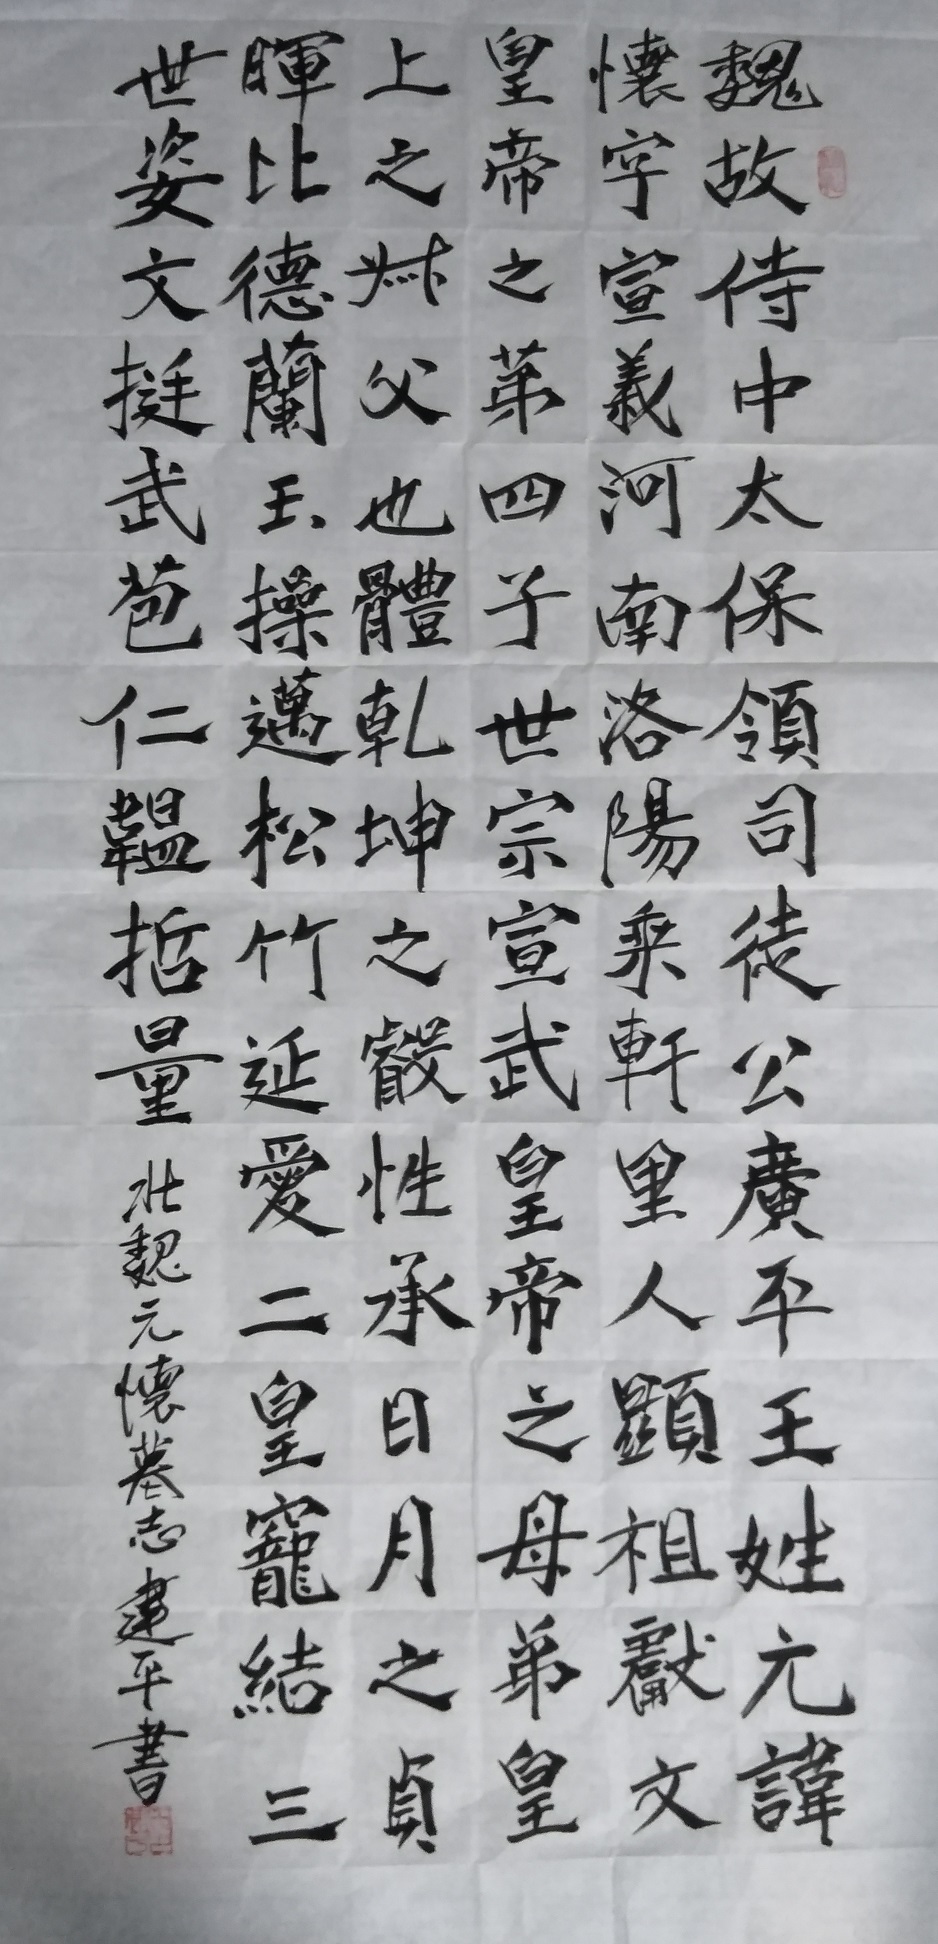 魏故侍中太保領司徒公廣平王姓元諱
懷字宣義河南洛陽乘軒里人顯祖獻文
皇帝之第四子世宗宣武皇帝之母弟皇
上之叔父也體乾坤之叡性承日月之貞
暉比德蘭玉操邁松竹延愛二皇寵結三
世姿文挺武苞仁韞哲量
北魏元懷墓志建平書